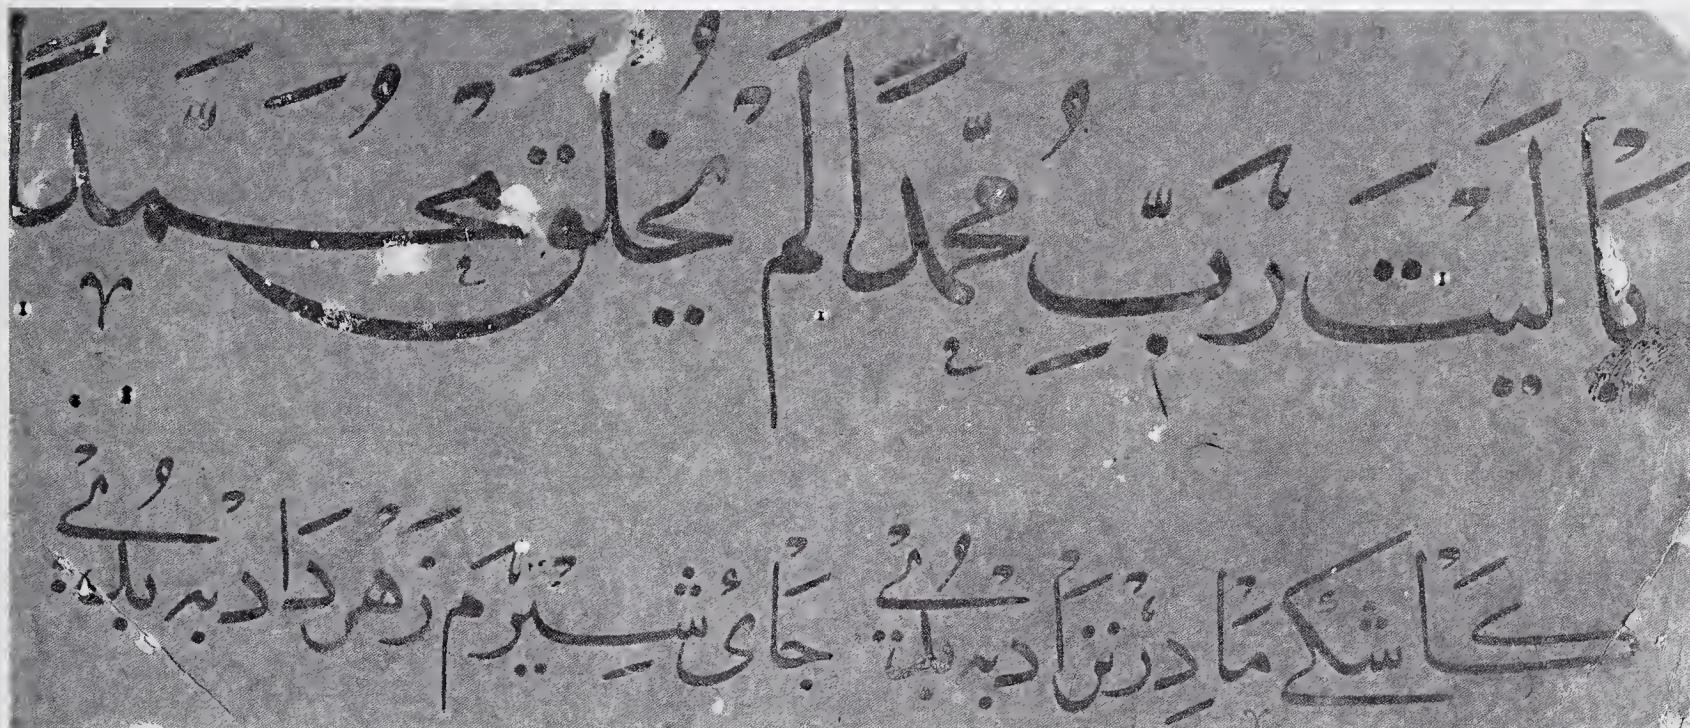 يَا لَيْتَ رَبِّ مُحَمَّدًا لَمْ يُخْلَقْ مُحَمَّدًا
كَاشْكے مَادِرْ نزَادبه جَائ شِيْرَمْ زَهْر دَادبه